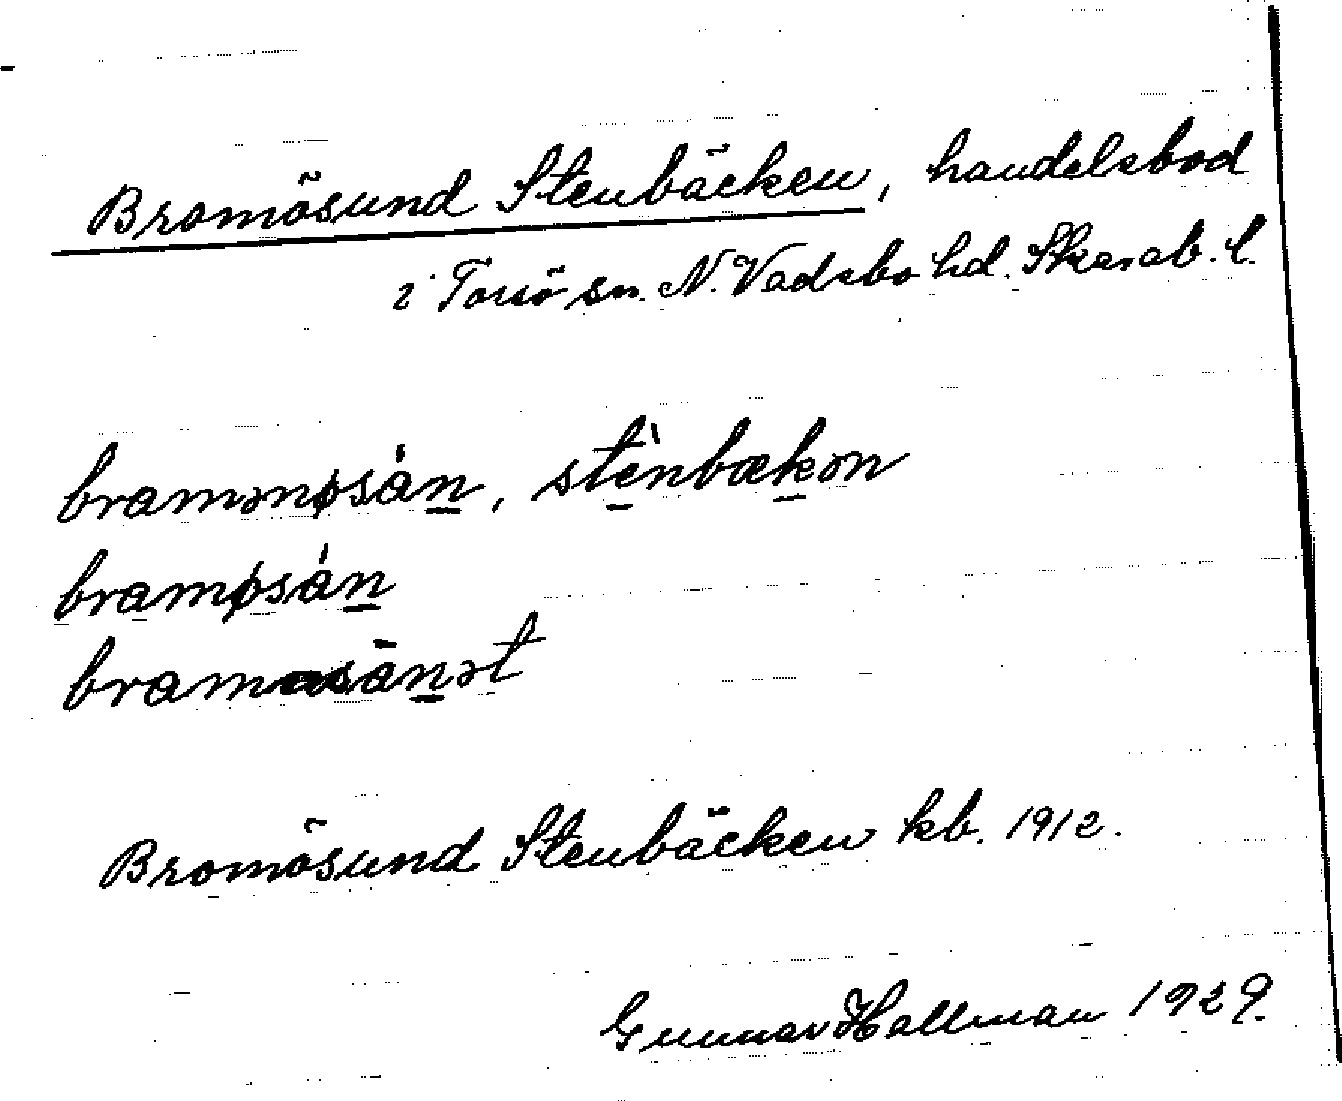 Bromösund Stenbäcken, handelsbod
i Torsö sn. N. Vadsbo hd. Skarab. l.
bramənøsán̲, stė̲nbæk̲ən
bramøsán̲
bramasān̲ət
Bromösund Stenbäcken kb. 1912.
Gunnar Hallman 1929.